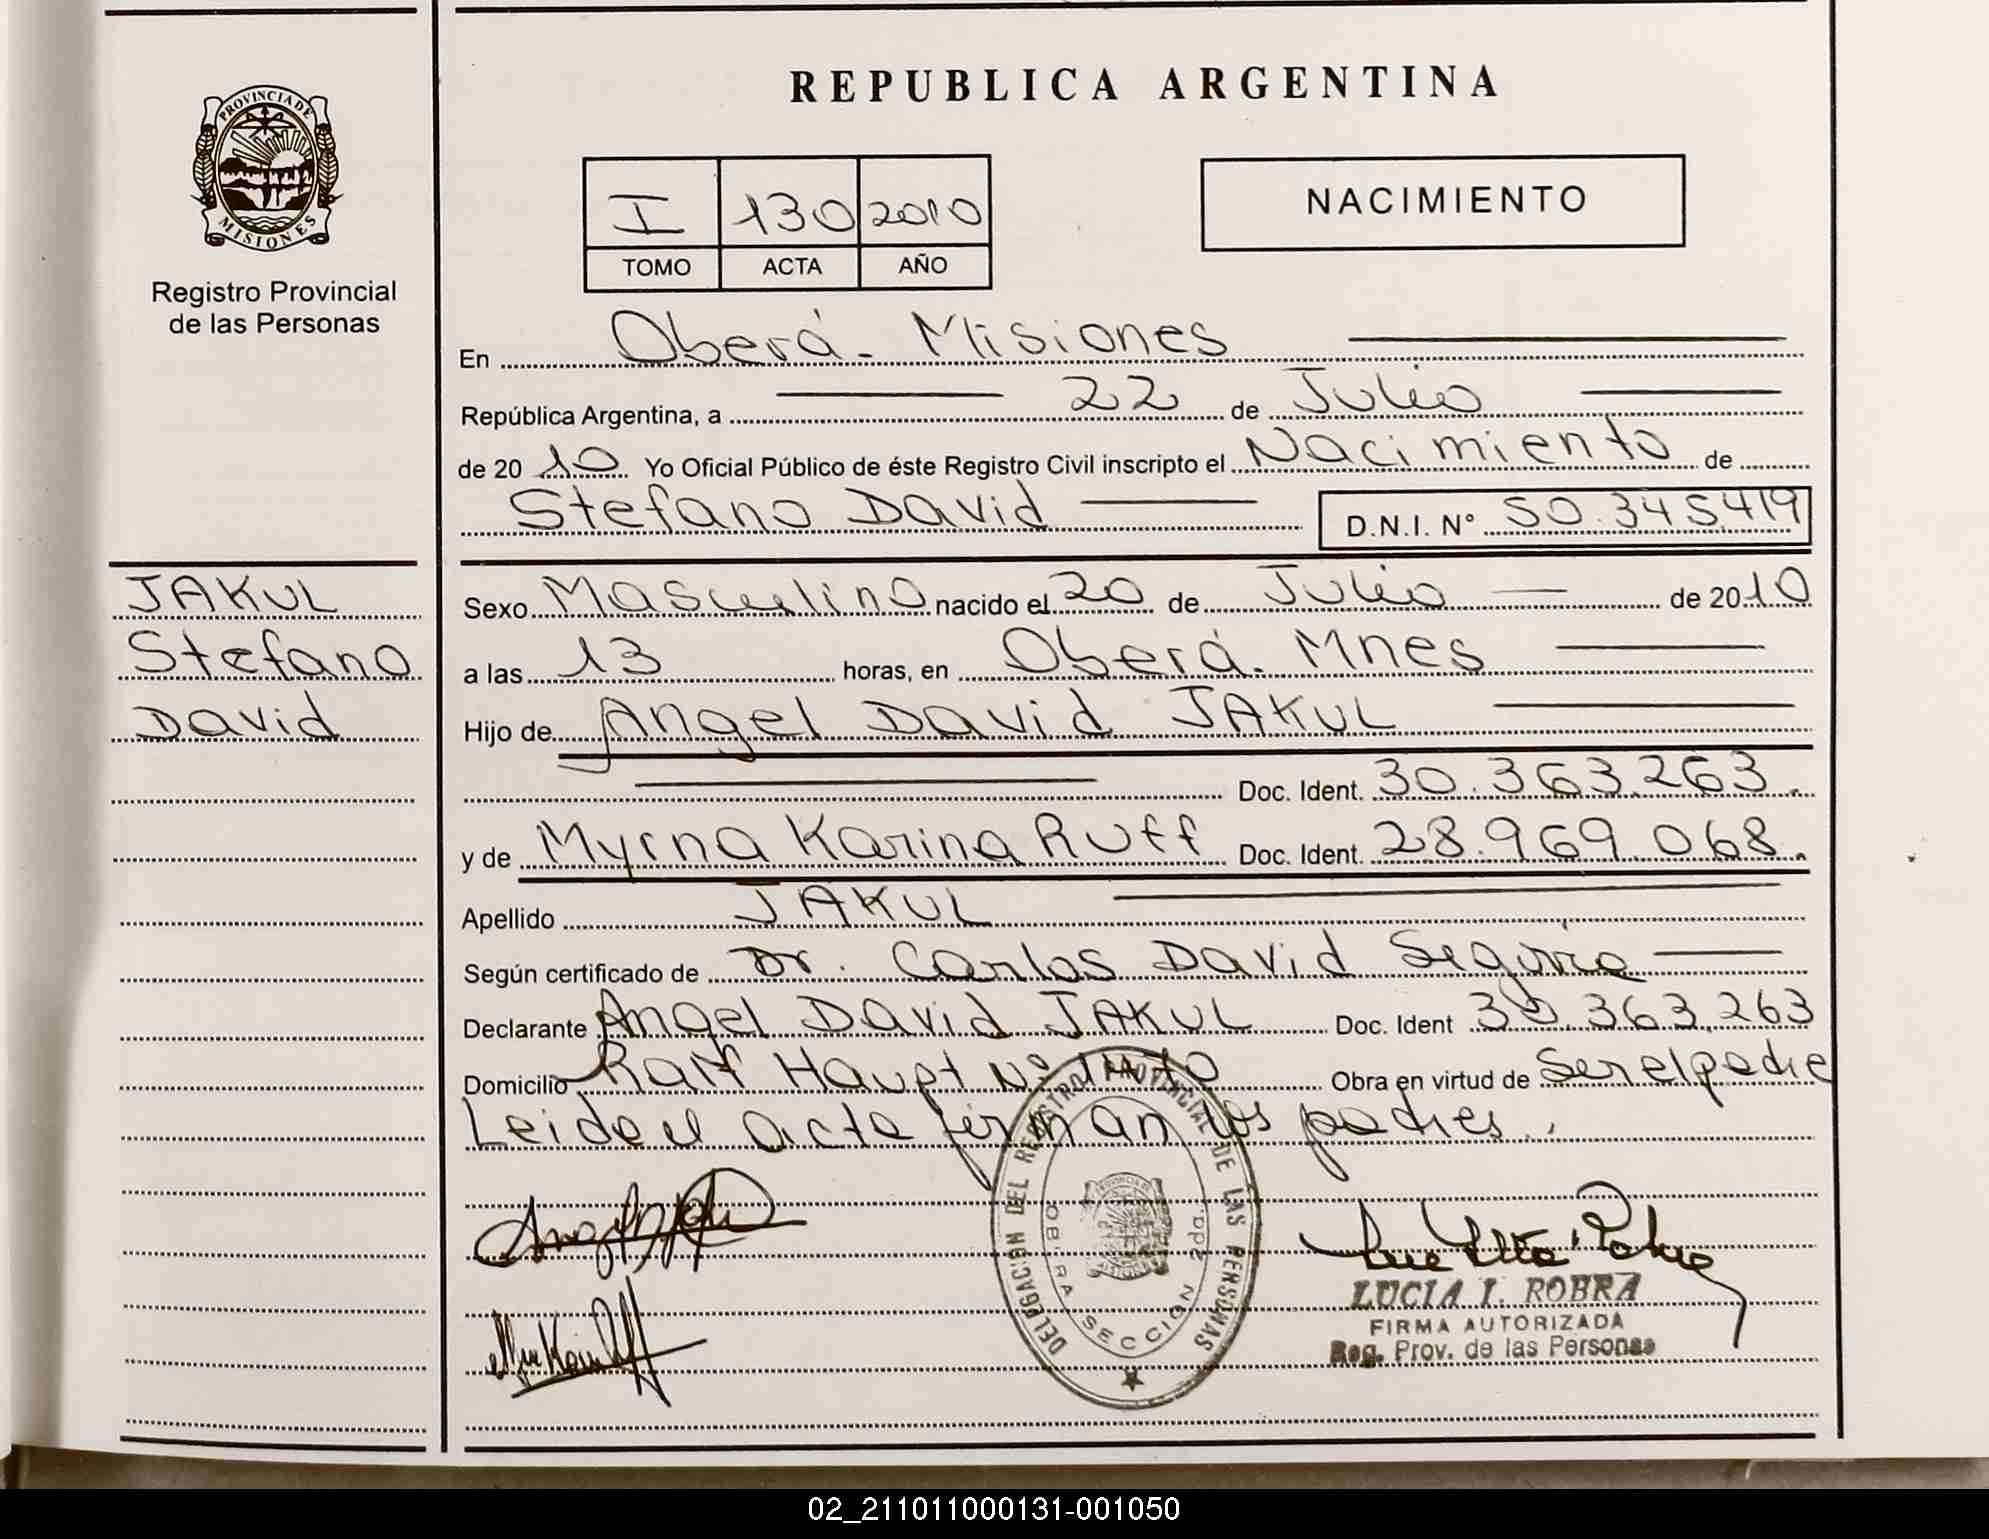 REPUBLICA ARGENTINA
PROVINCIA DE
MISIONES
Registro Provincial
de las Personas
I 130 2010
TOMO ACTA AÑO
NACIMIENTO
En Oberá - Misiones
República Argentina, a 22 de Julio
de 20 10 Yo Oficial Público de éste Registro Civil inscripto el Nacimiento de
Stefano David D.N.I. N° 50.345419
JAKUL
Stefano
David
Sexo Masculino nacido el 20 de Julio de 20 10
a las 13 horas, en Oberá. Mnes
Hijo de Angel David JAKUL
Doc. Ident. 30.363.263.
y de Myrna Karina Ruff Doc. Ident. 28.969.068.
Apellido JAKUL
Según certificado de Dr. Carlos David
Declarante Angel David JAKUL Doc. Ident 30.363.263
Domicilio Ralf Haupt Obra en virtud de Ser el padre
Leida el acta firman los padres.
DELEGACION DEL REGISTRO PROVINCIAL DE LAS PERSONAS
SECCION
LUCIA I. ROBRA
FIRMA AUTORIZADA
Reg. Prov. de las Personas
02_211011000131-001050